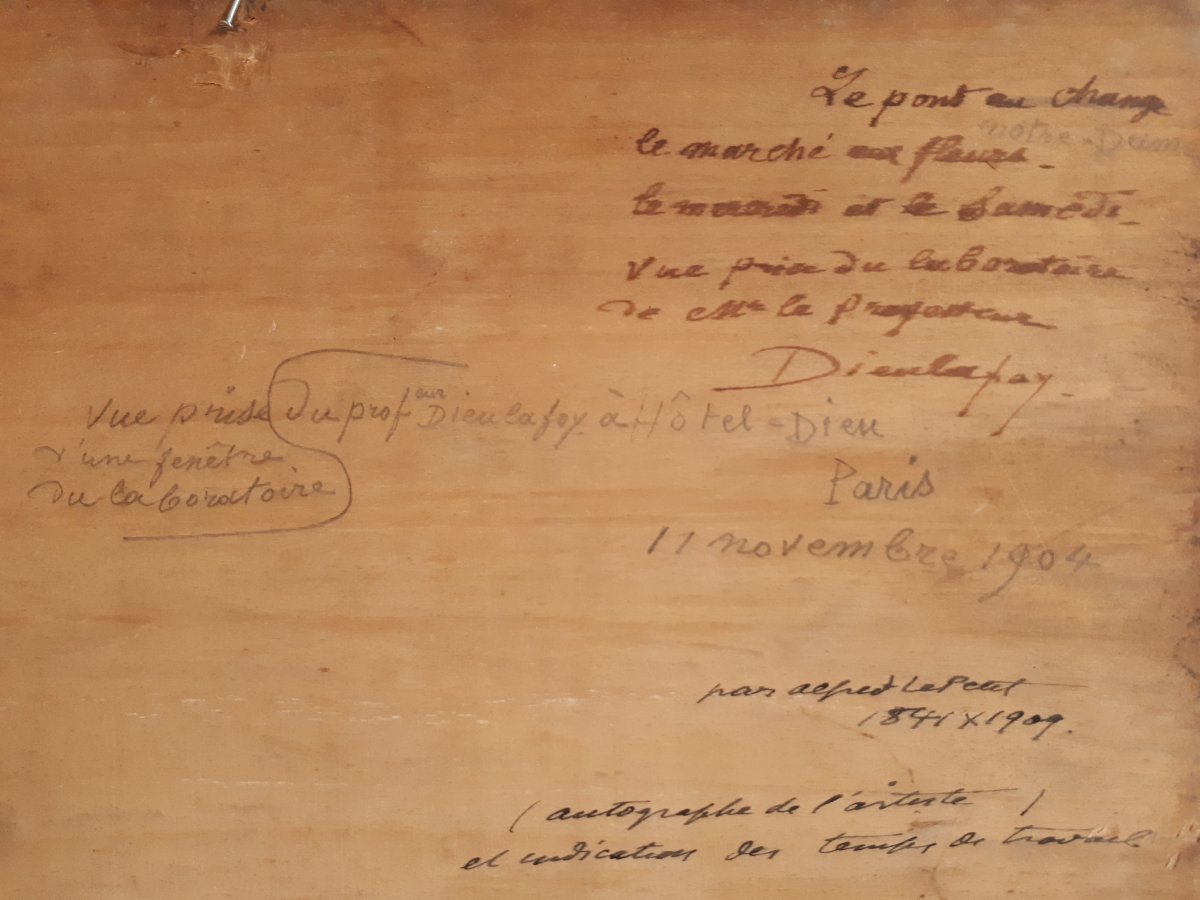 Le pont au change
notre-Dame
le marché aux fleurs.
le mercredi et le Samedi.
Vue prise du laboratoire
de Mr le Professeur
Dieulafoy.
Vue prise du professeur Dieulafoy à Hôtel-Dieu
d'une fenêtre
du laboratoire
Paris
11 novembre 1904
par alfred Le Petit
1841 X 1909.
(autographe de l'artiste)
et indication des temps de travail